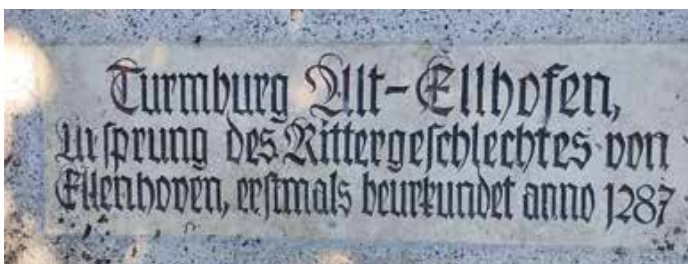 Turmburg Alt-Ellhofen,
Urſprung des Rittergeſchlechtes von
Ellenhoven, erſtmals beurkundet anno 1287